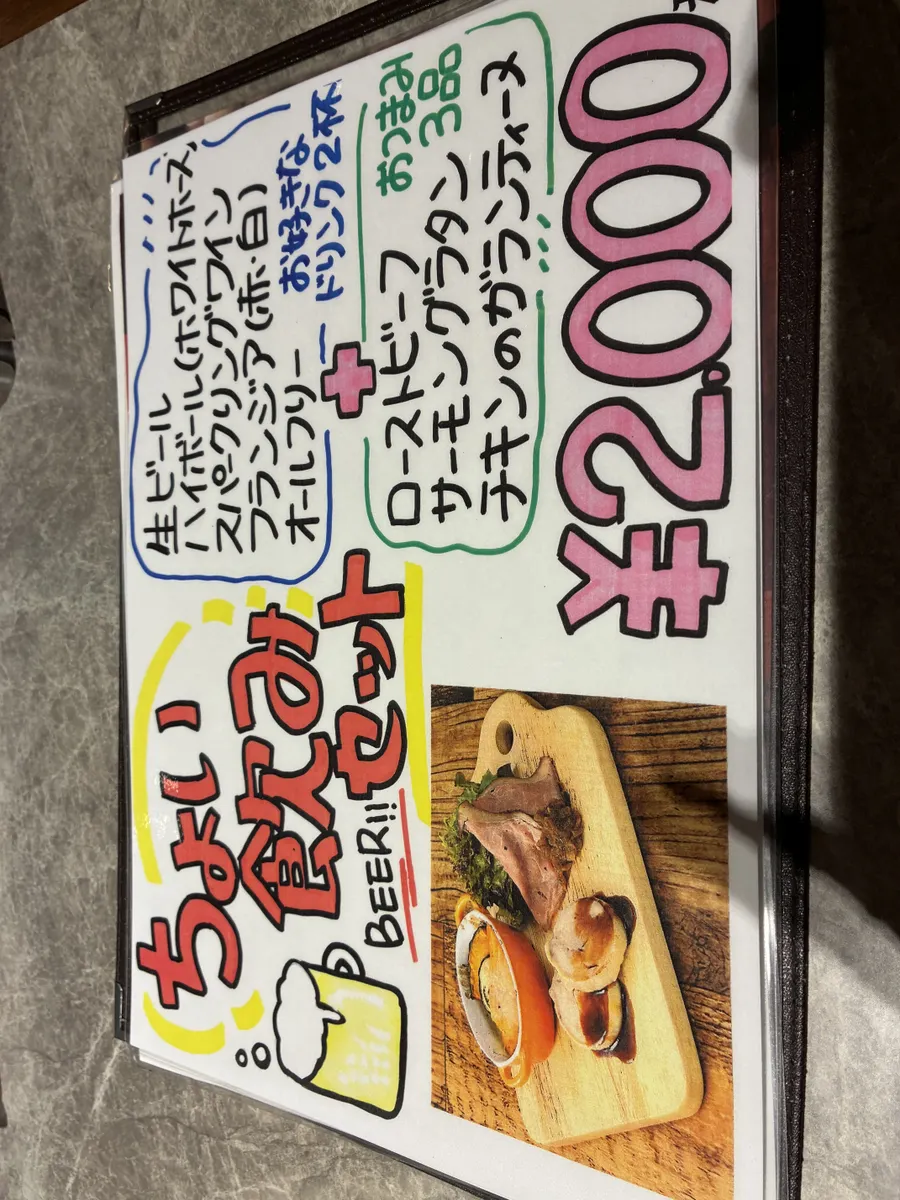 ちょい
飲み
セット
BEER!!
生ビール
ハイボール(ホワイトホース)
スパークリングワイン
フランジア(赤・白)
オールフリー
お好きな
ドリンク2杯
+
おつまみ
3品
ローストビーフ
サーモングラタン
チキンのガランティーヌ
¥2,000